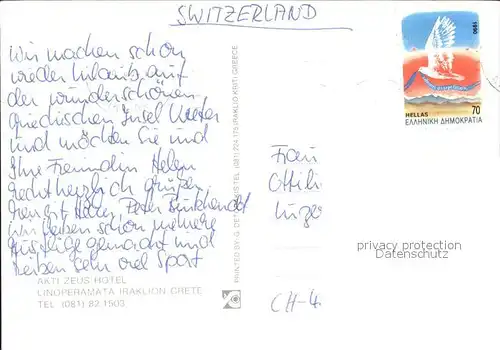 SWITZERLAND
Wir machen schon
wieder Urlaub auf
der wunderschönen
griechischen Insel Kreta
und möchten Sie und
Ihre Freundin Helen
recht herzlich grüßen.
Peter
wir haben schon mehrere
Ausflüge gemacht und
treiben sehr viel Sport
AKTI ZEUS HOTEL
LINOPERAMATA IRAKLION CRETE
TEL (081) 82 1503
1990
HELLAS 70
ΕΛΛΗΝΙΚΗ ΔΗΜΟΚΡΑΤΙΑ
Frau
Ottili
CH-4
privacy protection
Datenschutz